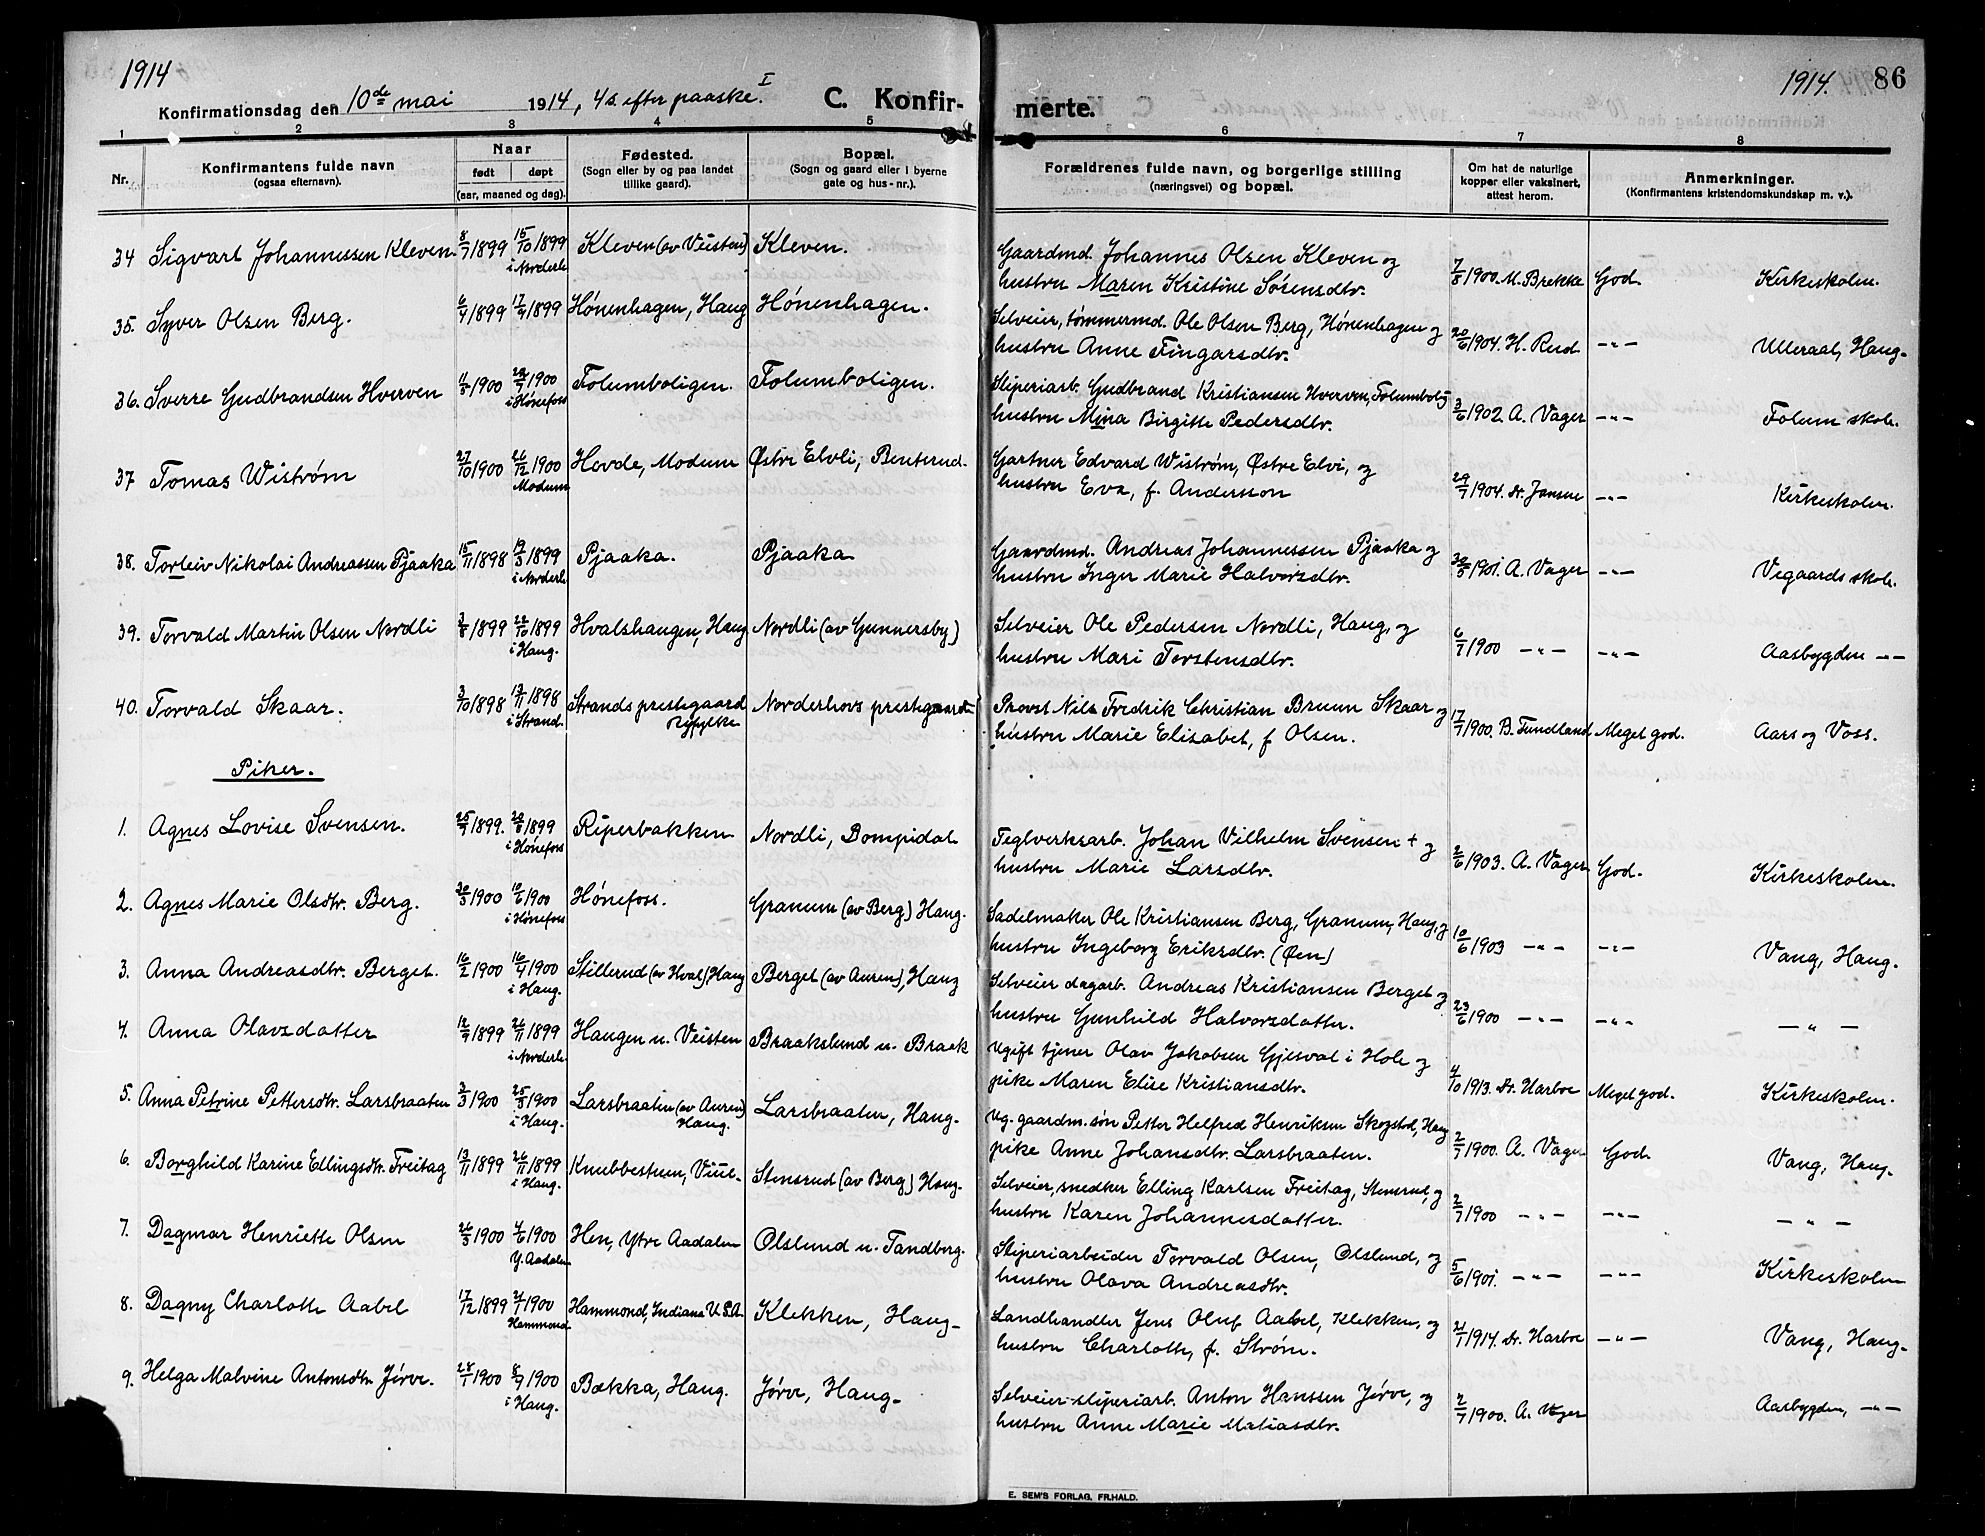 1914
Konfirmationsdag den 10de mai 1914, 4 s. efter paaske. I C. Konfir-
1 2 3 4 5
Nr. Konfirmantens fulde navn (ogsaa efternavn). Naar født døpt (aar, maaned og dag). Fødested. (Sogn eller by og paa landet tillike gaard). Bopæl. (Sogn og gaard eller i byerne gate og hus-nr.).
34 Sigvart Johannessen Kleven 8/7 1899 15/10 1899 i Norderh. Kleven (av Veisten) Kleven.
35. Syver Olsen Berg. 6/4 1899 17/9 1899 Hønenhagen, Haug Hønenhagen.
36. Sverre Gudbrandsen Hverven 11/5 1900 22/7 1900 i Hønefoss Folumboligen. Folumboligen.
37 Tomas Wistrøm 27/10 1900 26/12 1900 Modum Hovde, Modum Østre Elvli, Benterud.
38. Torleiv Nikolai Andreassen Pjaaka 15/11 1898 19/3 1899 i Norderh. Pjaaka. Pjaaka
39. Torvald Martin Olsen Nordli 3/8 1899 22/10 1899 i Haug. Hvalshaugen, Haug Nordli (av Gunnersby)
40. Torvald Skaar. 3/10 1898 13/11 1898 i Strand. Strands prestegaard Ryfylke Norderhovs prestegaard
Piker.
1. Agnes Lovise Svensen. 25/7 1899. 20/8 1899 i Hønefoss Riperbakken Nordli, Bompidal
2. Agnes Marie Olsdtr. Berg. 20/3 1900 10/6 1900 i Hønefoss Hønefoss. Granum (av Berg) Haug.
3. Anna Andreasdtr. Berget. 16/2 1900 16/4 1900 i Haug. Stillerud (av Hval), Haug Berget (av Auren), Haug
4. Anna Olavsdatter 12/9 1899 26/11 1899 i Norderh. Haugen u. Veisten Braakslund u. Braak
5. Anna Petrine Pettersdtr. Larsbraaten 3/3 1900 25/3 1900 i Haug. Larsbraaten (av Auren) Haug. Larsbraaten, Haug.
6. Borghild Karine Ellingsdtr. Freitag 13/11 1899 26/11 1899 i Haug. Knubbestuen, Viul. Stensrud (av Berg) Haug.
7. Dagmar Henriette Olsen 26/3 1900 4/6 1900 Y. Aadalen Hen, Ytre Aadalen Olslund u. Tandberg.
8. Dagny Charlotte Aabel 17/12 1899 21/1 1900 Hammond Hammond, Indiana U.S.A. Klekken, Haug
9. Helga Malvine Antonsdtr. Jørve. 28/1 1900 8/7 1900 i Haug. Bækka, Haug. Jørve, Haug
1914. 86
merte.
6 7 8
Forældrenes fulde navn, og borgerlige stilling (næringsvei) og bopæl. Om hat de naturlige kopper eller vaksinert, attest herom. Anmerkninger. (Konfirmantens kristendomskundskap m. v.).
Gaardmd. Johannes Olsen Kleven og
hustru Maren Kristine Sørensdtr. 7/8 1900. M. Brekke God. Kirkeskolen.
Selveier, tømmermd. Ole Olsen Berg, Hønenhagen og
hustru Anne Fingarsdtr. 20/6 1904. H. Rud -"- Ulleraal, Haug.
Sliperiarb. Gudbrand Kristiansen Hverven, Folumbolig
hustru Mina Birgitte Pedersdtr. 3/6 1902 A. Vager -"- Folum skole.
Gartner Edvard Wistrøm, Østre Elvi, og
hustru Eva, f. Andersson 29/7 1904. Dr. Jansen -"- Kirkeskolen.
Gaardmd. Andreas Johannessen Pjaaka og
hustru Inger Marie Halvorsdtr. 30/5 1901. A. Vager -"- Vegaards skole.
Selveier Ole Pedersen Nordli, Haug, og
hustru Mari Torstensdtr. 6/7 1900 -"- -"- Aasbygden -"-
Provst Nils Fredrik Christian Bruun Skaar og
hustru Marie Elisabet, f. Olsen. 17/7 1900. B. Tundland Meget god. Aars og Voss.
Teglverksarb. Johan Vilhelm Svensen + og
hustru Marie Larsdtr. 2/6 1903. A. Vager God. Kirkeskolen.
Sadelmaker Ole Kristiansen Berg, Granum, Haug, og
hustru Ingeborg Eriksdtr. (Øen) 10/6 1903 -"- -"- Vang, Haug.
Selveier dagarb. Andreas Kristiansen Berget og
hustru Gunhild Halvorsdatter. 23/6 1900 -"- -"- -"-
Ugift tjener Olav Jakobsen Gjesval i Hole og
pike Maren Elise Kristiansdtr. 4/10 1913. Dr. Harboe Meget god. Kirkeskolen.
Ug. gaardm. søn Petter Helfred Henriksen Skogstad, Haug
pike Anne Johansdtr. Larsbraaten. 2/7 1900. A. Vager God. Vang, Haug.
Selveier, snedker Elling Karlsen Freitag, Stensrud, og
hustru Karen Johannesdatter. 2/7 1900 -"- -"- -"-
Sliperiarbeider Torvald Olsen, Olslund, og
hustru Olava Andreasdtr. 5/6 1901. -"- -"- Kirkeskolen
Landhandler Jens Oluf Aabel, Klekken, og
hustru Charlotte, f. Strøm. 21/1 1914. Dr. Harboe -"- Vang, Haug.
Selveier sliperiarb. Anton Hanssen Jørve, og
hustru Anne Marie Matiasdtr. 2/7 1900. A. Vager Aasbygden, -"-
E. SEM'S FORLAG, FR.HALD.